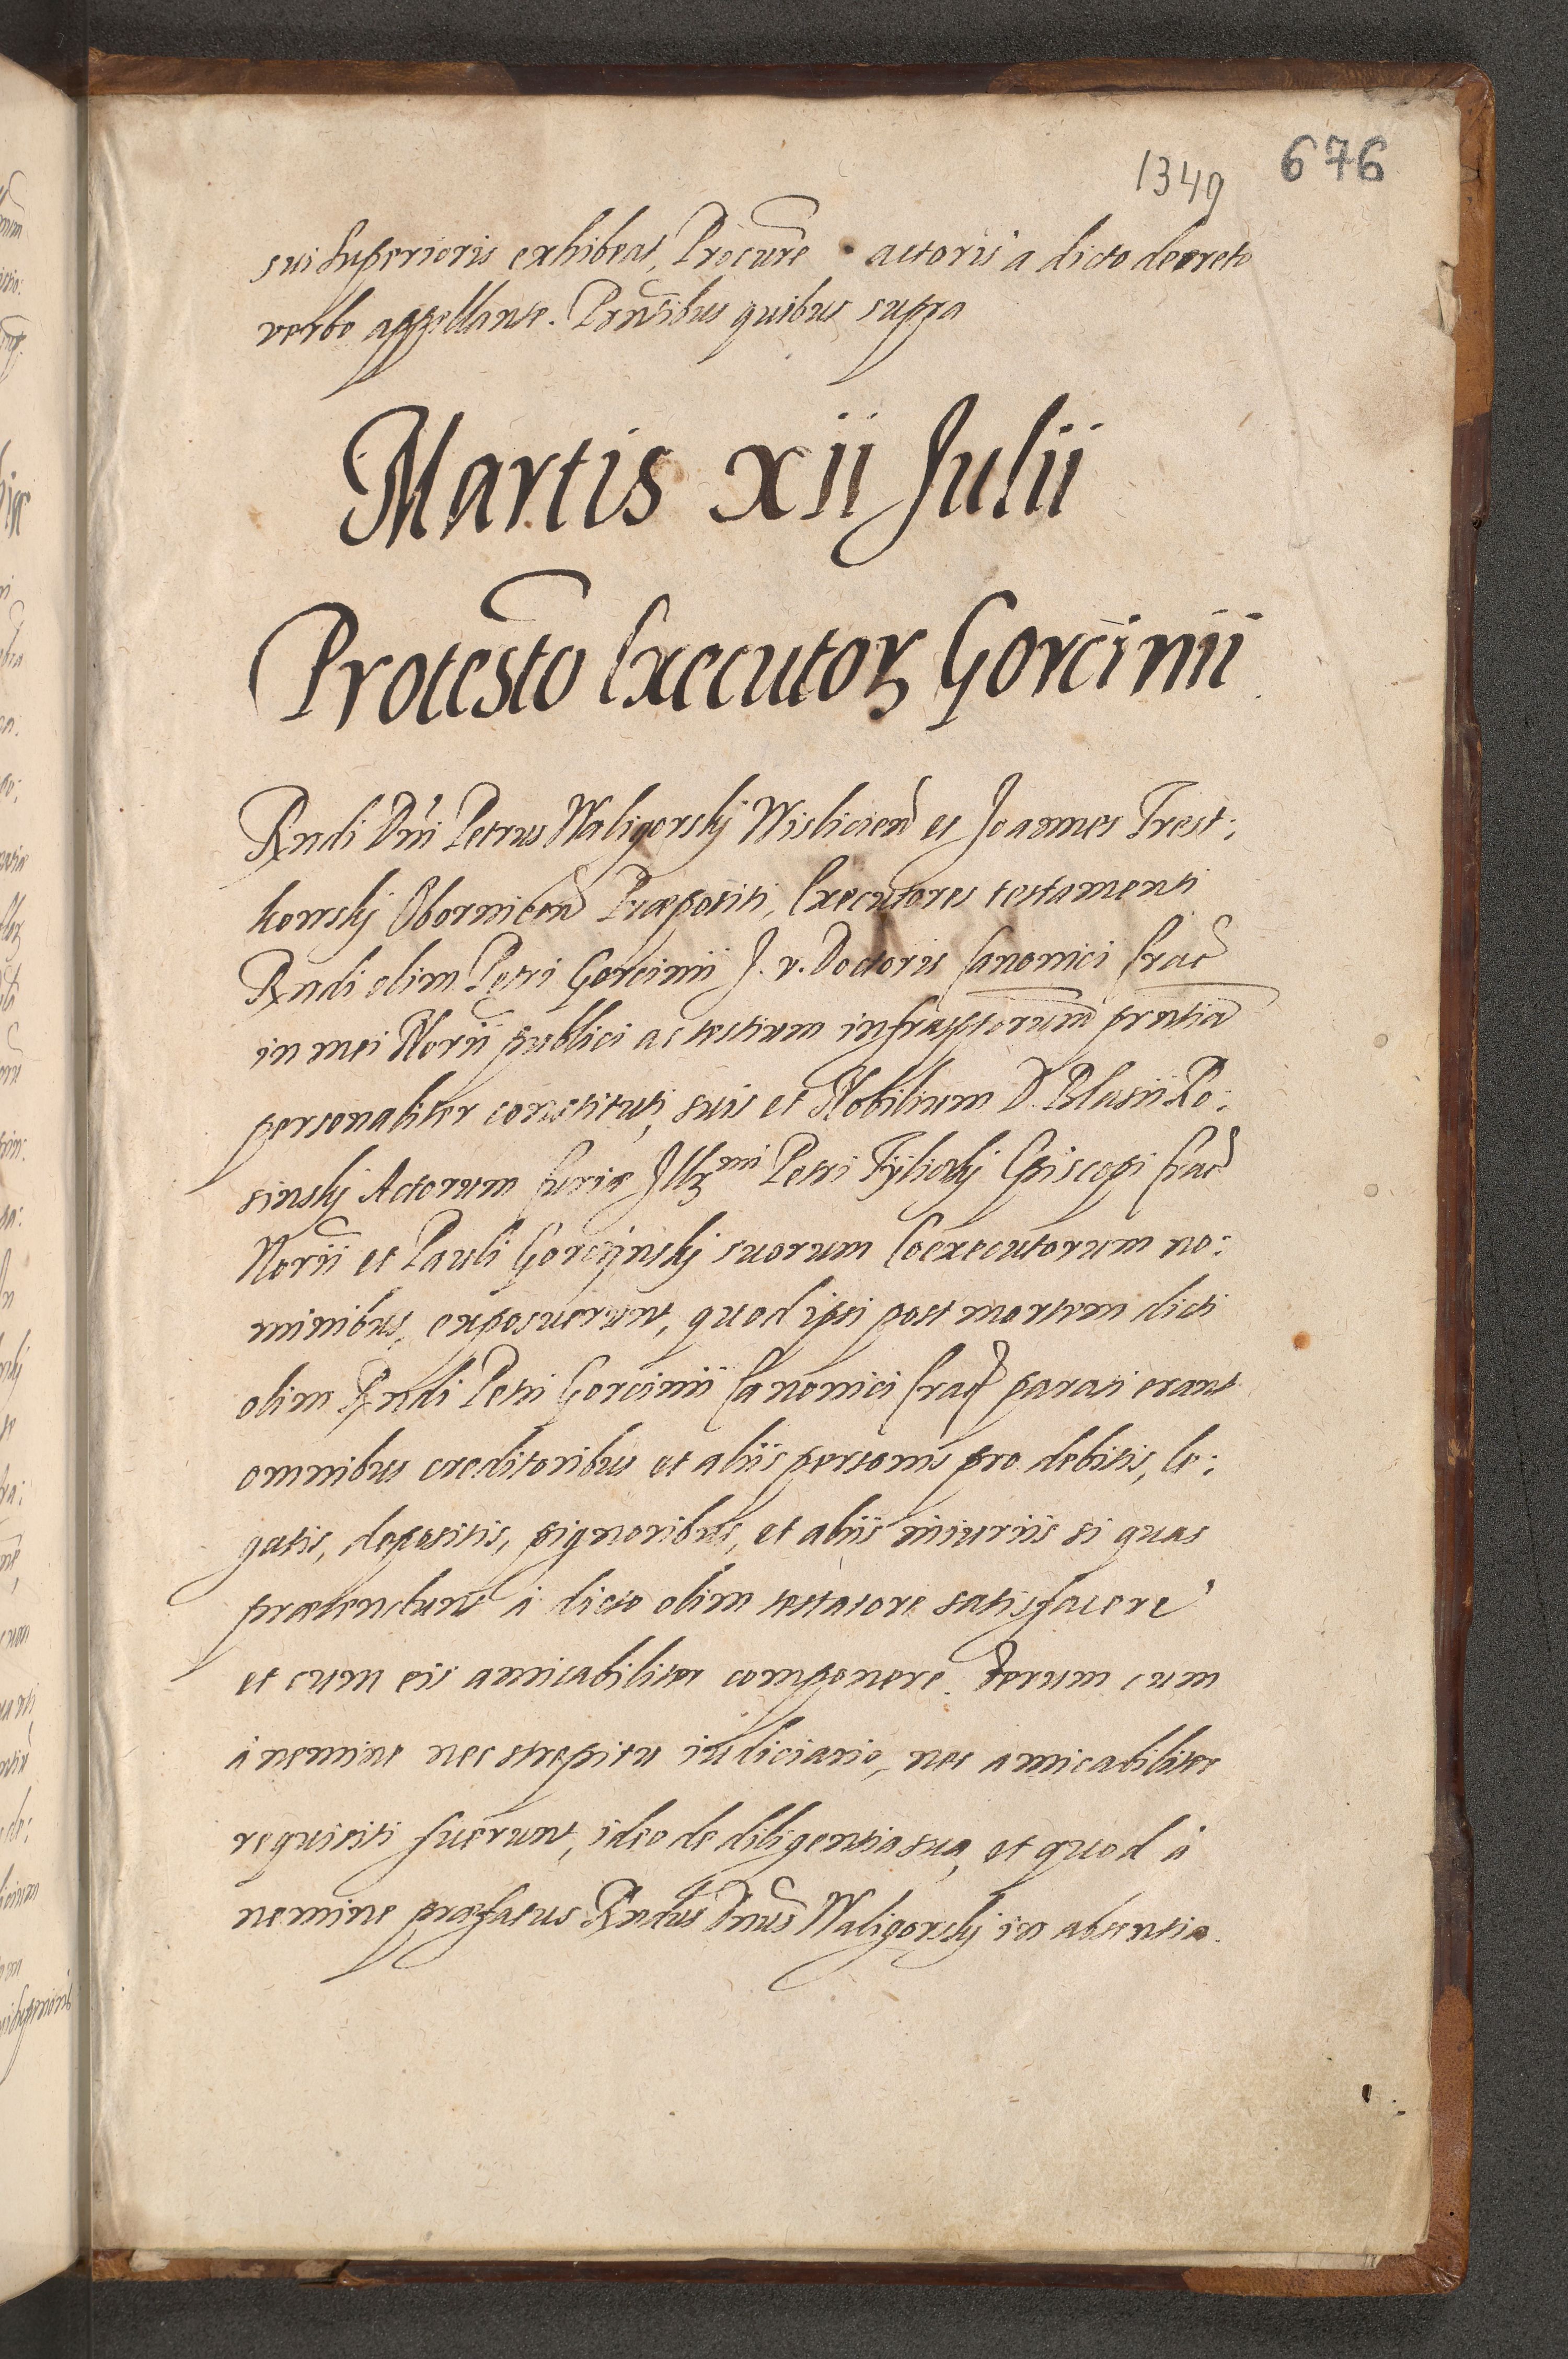 1349 676
sui Superioris exhibeat, Procure actoris a dicto decreto
verbo appellante. Prntibus quibus supra
Martis xii Julii
Protesto Executorꝝ Gorcinii
Rndi Dni Petrus Waligorskj Wisliciens et Joannes Trest:
kowskj Obornicen Præpositi, Executores testamenti
Rndi olim Petri Gorcinii J. v. Doctoris Canonici Crac
in mei Norii publici ac testium infrascptorum prntia
personaliter constituti, suis et Nobilium D. Blasii Ro:
sinskj Actorum Curiæ Illꝝmi Petri Tylickj Episcopi Crac
Norii et Pauli Gorczÿnskj suorum Coexecutorum no:
minibus, exposuerunt, quod ipsi post mortem dicti
olim Rndi Petri Gorcinii Canonici Crac parati erant
omnibus creditoribus et aliis personis pro debitis, le:
gatis, depositis, pignoribus, et aliis iniuriis si quas
prætendunt à dicto olim testatore satisfacere
et cum eis amicabiliter componere. Verum cum
à nemine nec strepitu iudiciario, nec amicabiliter
requisiti fuerunt, ideo de diligentia sua, et quod à
nemine præfatus Rndus Dnus Waligorskj in absentia